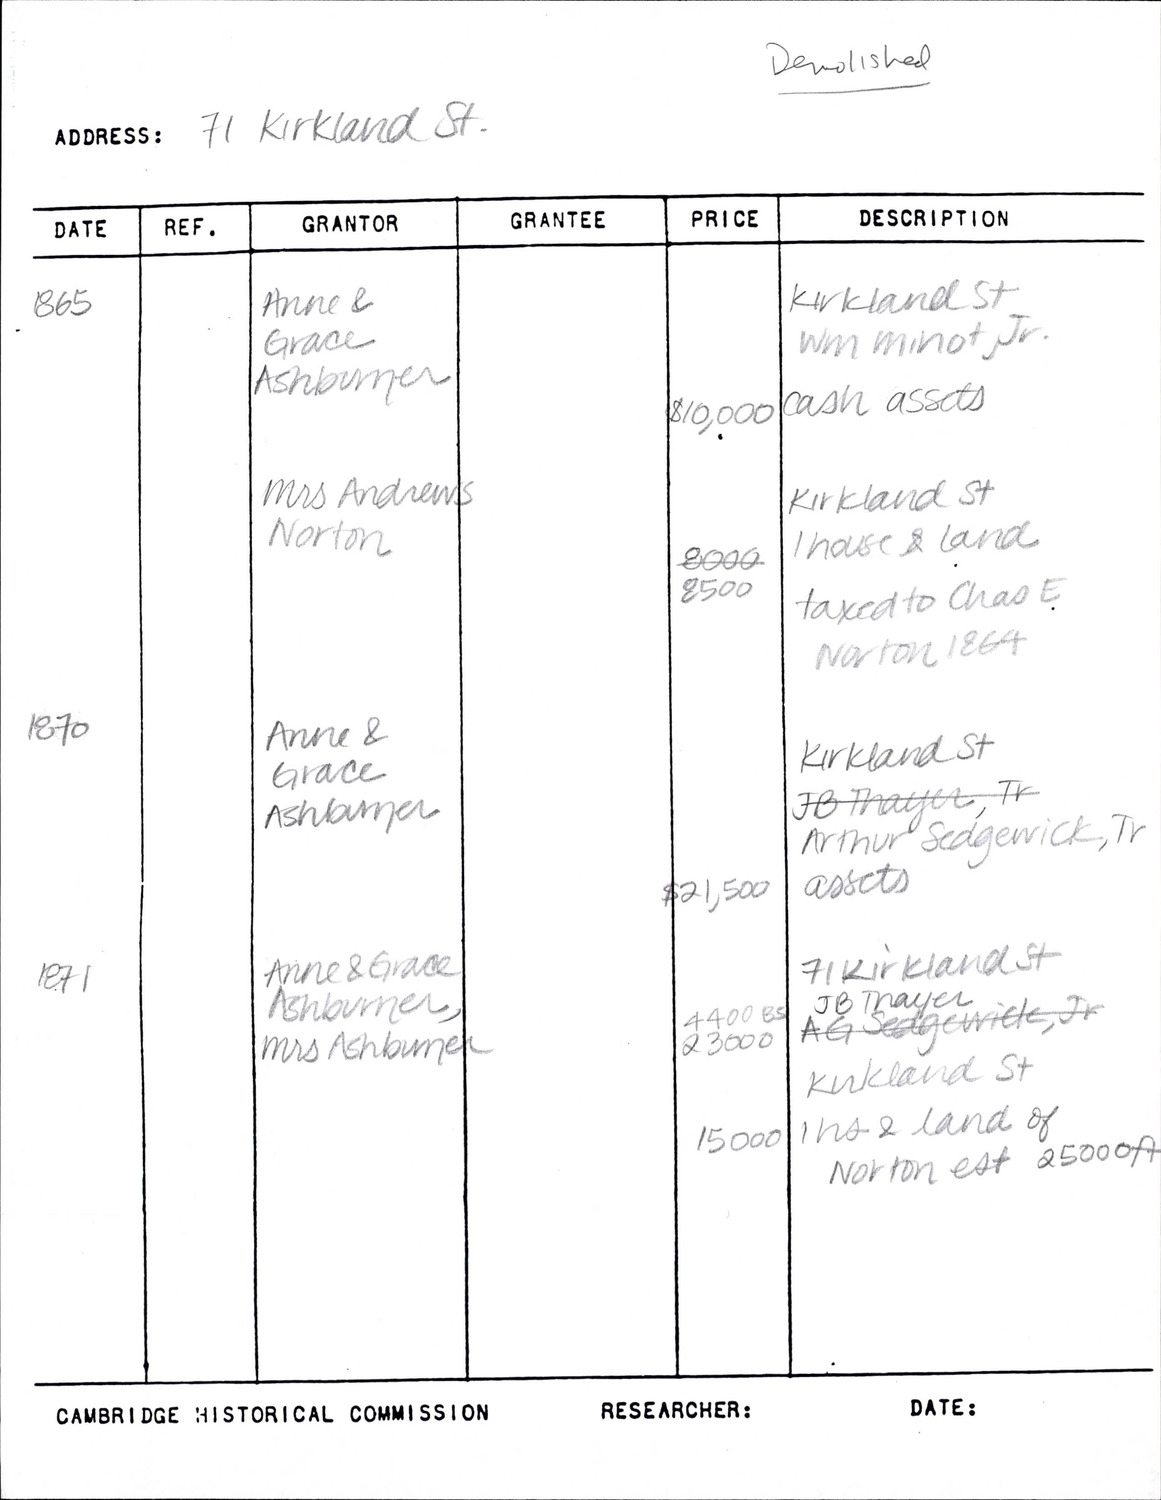 Demolished
ADDRESS: 71 Kirkland St.
DATE REF. GRANTOR GRANTEE PRICE DESCRIPTION
1865 Anne & Kirkland St
Grace Wm Minot, Jr.
Ashburner
$10,000 cash assets
Mrs Andrews Kirkland St
Norton 1 house & land
8000
8500 taxed to Chas E.
Norton 1864
1870 Anne & Kirkland St
Grace JB Thayer, Tr
Ashburner Arthur Sedgewick, Tr
$21,500 assets
1871 Anne & Grace 71 Kirkland St
Ashburner, 4400 BS JB Thayer
Mrs Ashburner 23000 AG Sedgewick, Jr
Kirkland St
15000 1 hs & land of
Norton est 25000ft
CAMBRIDGE HISTORICAL COMMISSION RESEARCHER: DATE: